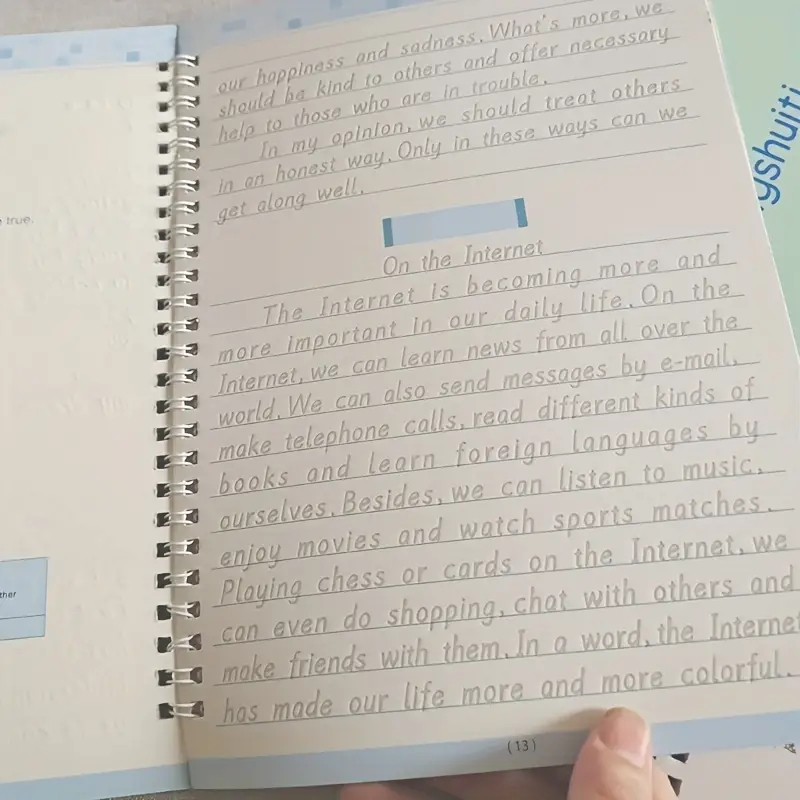 our happiness and sadness. What's more, we
should be kind to others and offer necessary
help to those who are in trouble.
In my opinion, we should treat others
in an honest way. Only in these ways can we
get along well.
On the Internet
The Internet is becoming more and
more important in our daily life. On the
Internet, we can learn news from all over the
world. We can also send messages by e-mail,
make telephone calls, read different kinds of
books and learn foreign languages by
ourselves. Besides, we can listen to music,
enjoy movies and watch sports matches.
Playing chess or cards on the Internet, we
can even do shopping, chat with others and
make friends with them. In a word, the Internet
has made our life more and more colorful.
(13)
true.